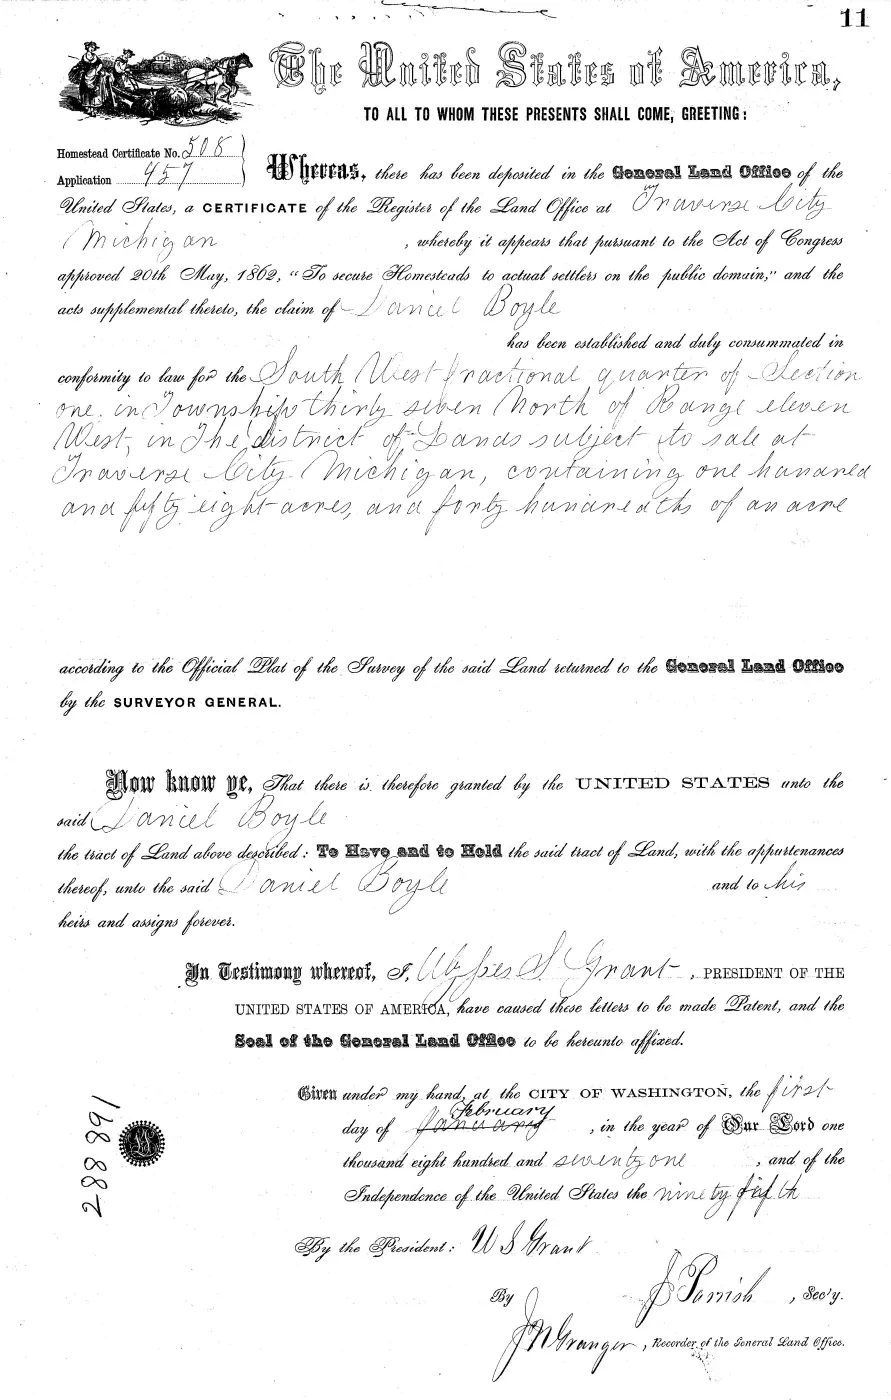 11
The United States of America,
TO ALL TO WHOM THESE PRESENTS SHALL COME, GREETING:
Homestead Certificate No. 508
Application 957
Whereas, there has been deposited in the General Land Office of the
United States, a CERTIFICATE of the Register of the Land Office at Traverse City
Michigan , whereby it appears that pursuant to the Act of Congress
approved 20th May, 1862, "To secure Homesteads to actual settlers on the public domain," and the
acts supplemental thereto, the claim of Daniel Boyle
has been established and duly consummated in
conformity to law for the South West fractional quarter of Section
one in Township thirty seven North of Range eleven
West, in The district of Lands subject to sale at
Traverse City Michigan, containing one hundred
and fifty eight acres, and forty hundredths of an acre
according to the Official Plat of the Survey of the said Land returned to the General Land Office
by the SURVEYOR GENERAL.
Now know ye, That there is therefore granted by the UNITED STATES unto the
said Daniel Boyle
the tract of Land above described: To Have and to Hold the said tract of Land, with the appurtenances
thereof, unto the said Daniel Boyle and to his
heirs and assigns forever.
In Testimony whereof, I, Ulysses S. Grant , PRESIDENT OF THE
UNITED STATES OF AMERICA, have caused these letters to be made Patent, and the
Seal of the General Land Office to be hereunto affixed.
Given under my hand, at the CITY OF WASHINGTON, the first
February
day of January , in the year of Our Lord one
thousand eight hundred and seventy one , and of the
Independence of the United States the ninety fifth
By the President: U S Grant
By J Parrish , Sec'y.
J N Granger , Recorder of the General Land Office.
288891